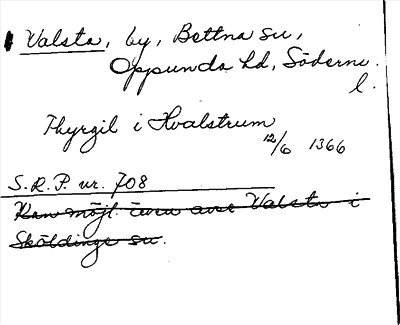 Valsta, by, Bettna sn,
Oppunda hd, Söderml.
Thyrgil i Hvalstrum
12/6 1366
S.R.P. nr. 708
Kan möjl. även avse Valsta i
Sköldinge sn.